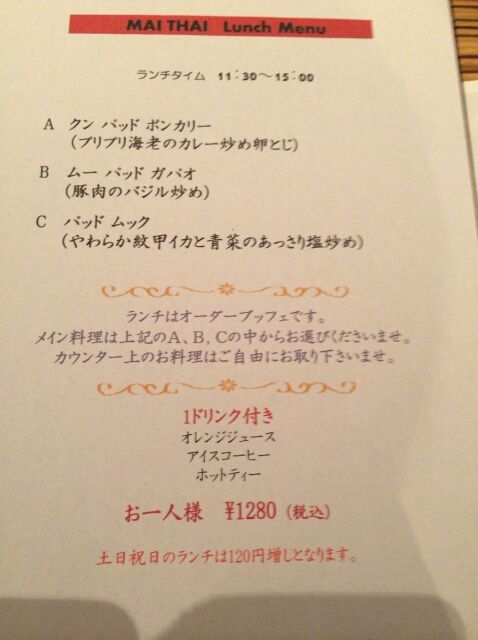 MAI THAI Lunch Menu
ランチタイム 11:30~15:00
A クン パッド ポンカリー
(プリプリ海老のカレー炒め卵とじ)
B ムー パッド ガパオ
(豚肉のバジル炒め)
C パッド ムック
(やわらか紋甲イカと青菜のあっさり塩炒め)
ランチはオーダーブッフェです。
メイン料理は上記のA、B、Cの中からお選びくださいませ。
カウンター上のお料理はご自由にお取り下さいませ。
1ドリンク付き
オレンジジュース
アイスコーヒー
ホットティー
お一人様 ¥1280 (税込)
土日祝日のランチは120円増しとなります。